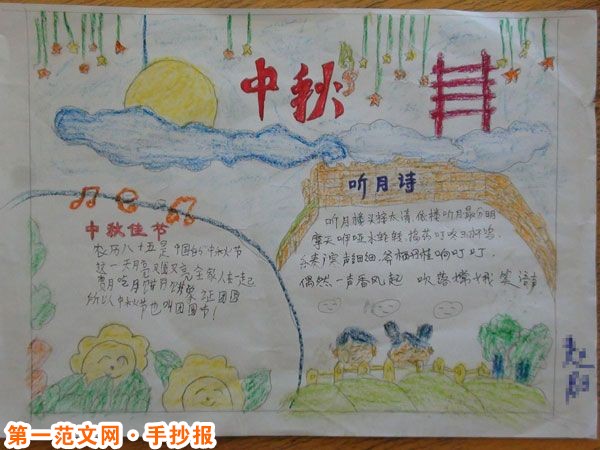 中秋
中秋佳节
农历八十五是中国的中秋节
这一天月亮又值又亮,全家人在一起
赏月吃月饼月饼象征团圆
所以中秋节也叫团圆节!
听月诗
听月楼头接太清,依楼听月最分明
摩天咿哑冰轮转,捣药叮咚玉杵鸣
乐奏广寒声细细,斧柯丹桂响叮叮
偶然一声香风起 吹落嫦娥笑语声
第一范文网·手抄报